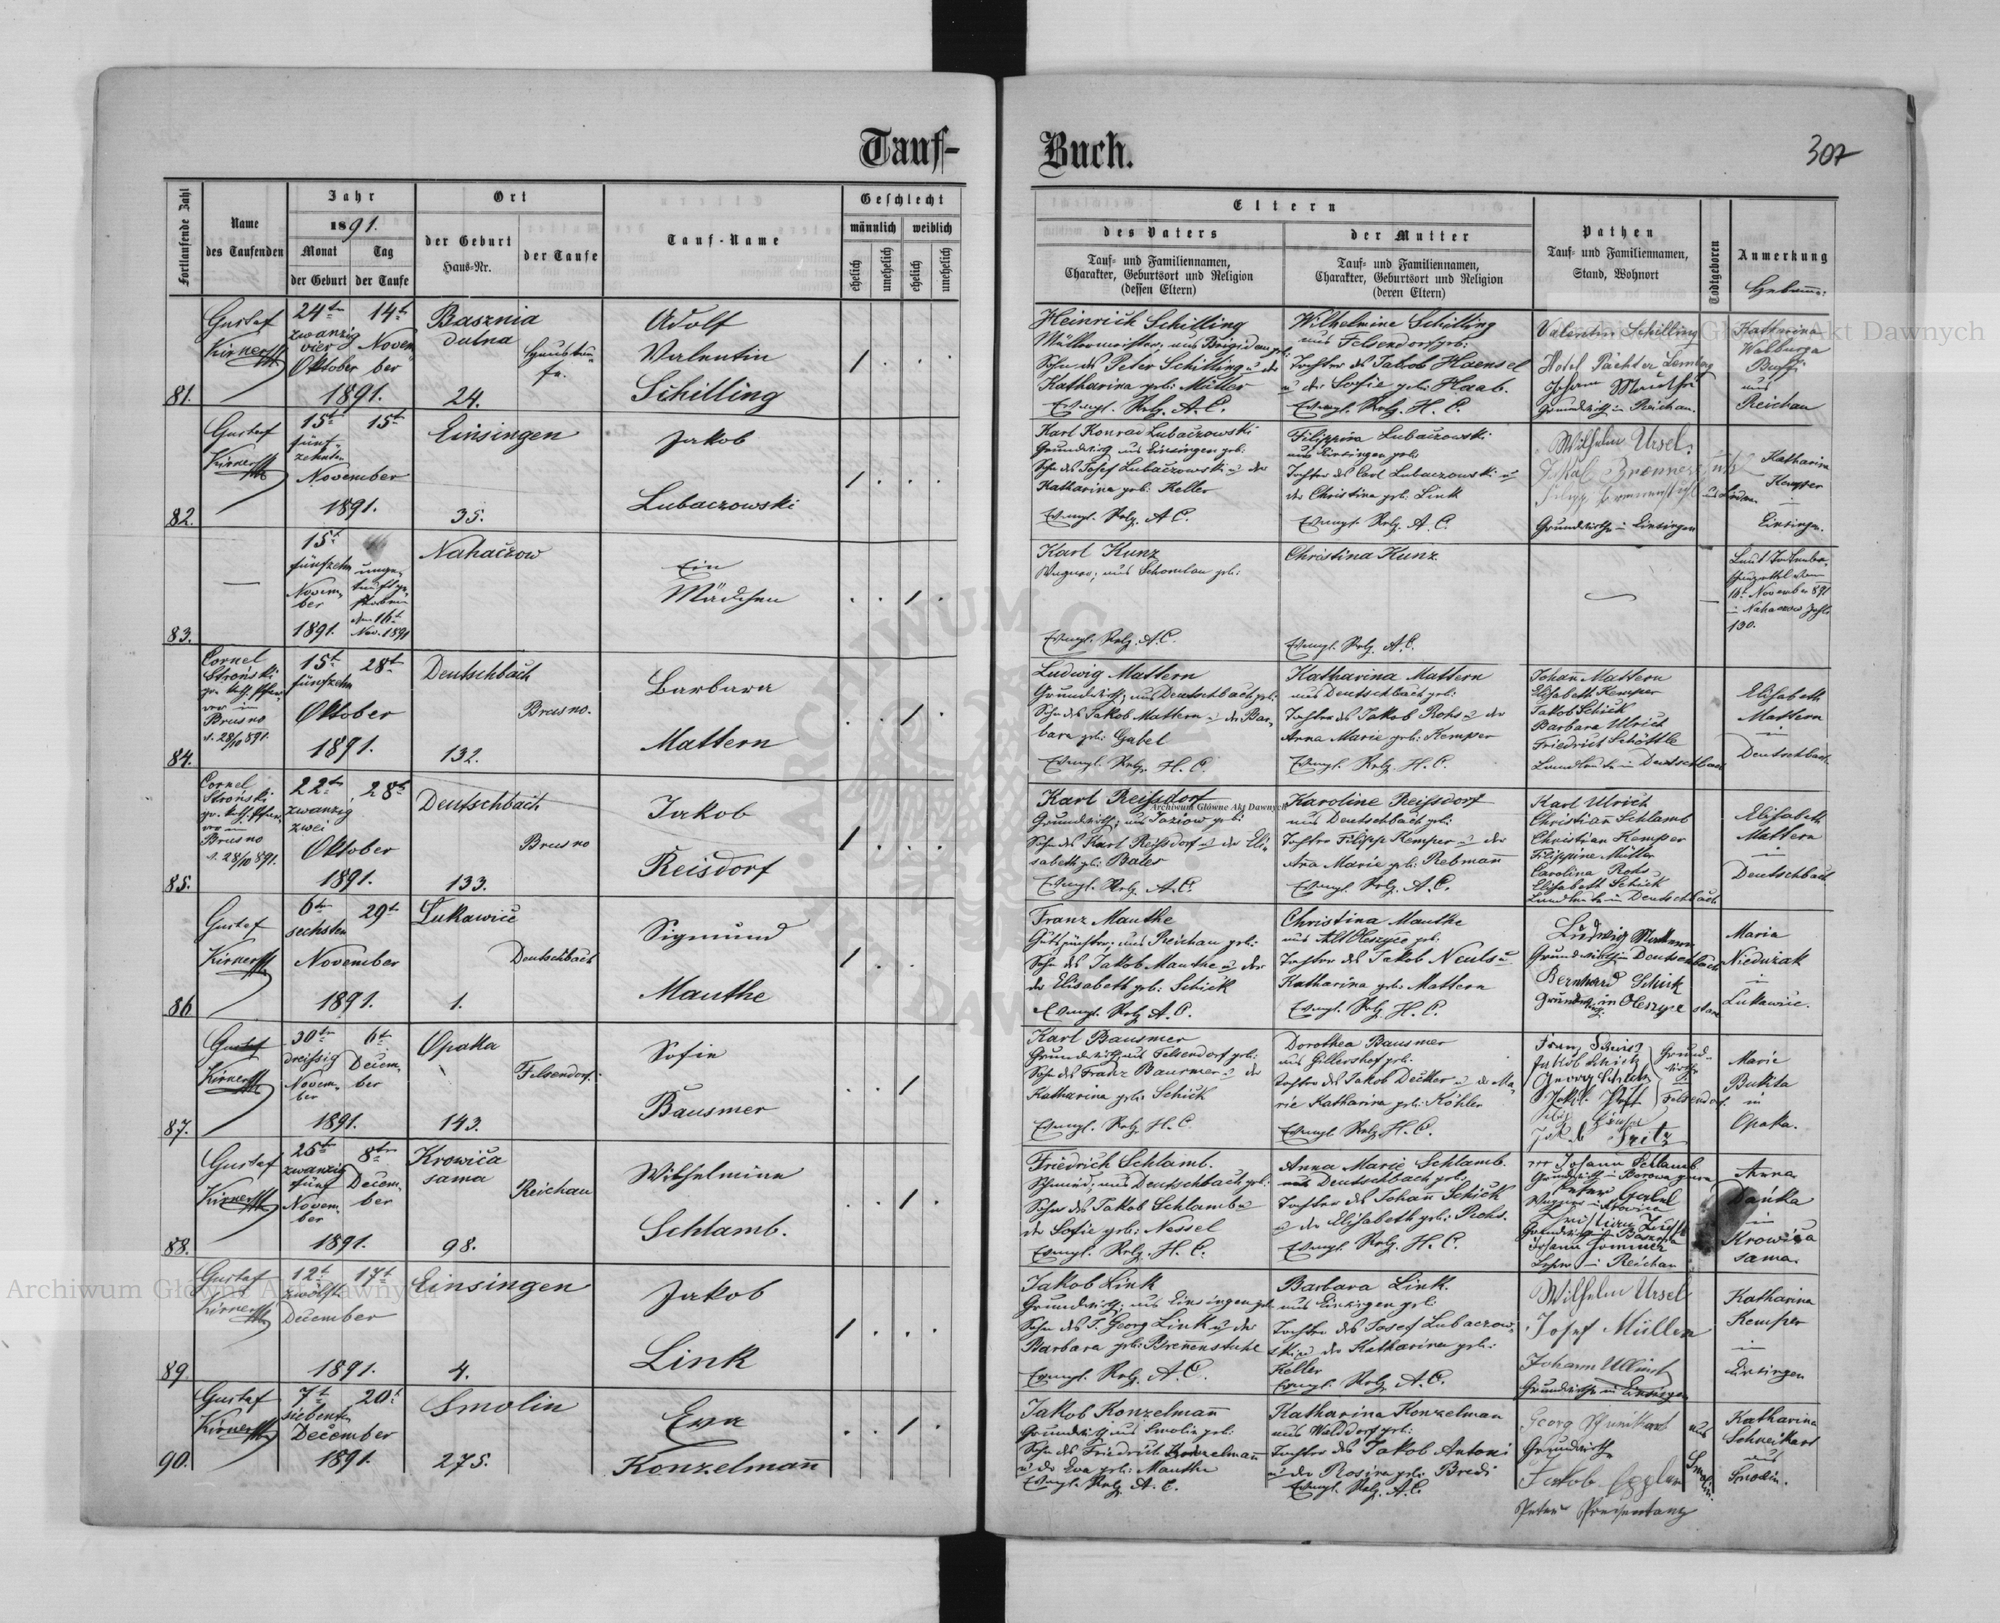 Tauf-
Buch.
307
Fortlaufende Zahl
Name
des Taufenden
Jahr
1891.
Monat
Tag
der Geburt
der Taufe
Ort
der Geburt
Haus-Nr.
der Taufe
Tauf-Name
Geschlecht
männlich
weiblich
ehelich
unehelich
ehelich
unehelich
Eltern
des Vaters
Tauf- und Familiennamen,
Charakter, Geburtsort und Religion
(dessen Eltern)
der Mutter
Tauf- und Familiennamen,
Charakter, Geburtsort und Religion
(deren Eltern)
Pathen
Tauf- und Familiennamen,
Stand, Wohnort
Todtgeboren
Anmerkung
81.
Gustaf
24t
zwanzig
vier
Oktober
14t
Novem
ber
1891.
Basznia
dolna
24.
Adolf
Valentin
Schilling
Heinrich Schilling
Sohn des Peter Schilling u der
Katharina geb: Müller
Evangl. Relg. A.C.
Wilhelmine Schilling
aus Felsendorf geb:
Tochter des Jakob Haensel
u der Sofie geb: Haab.
Evangl. Relg. H.C.
Valentin Schilling
Hotel Pächter Lemberg
Johann Mauthe
Grundwirth in Reichau.
Katharina
Walburga
aus
Reichau
82.
Gustaf
15t
fünf-
zehnten
November
15t
1891.
Einsingen
35.
Jakob
Lubaczowski
Karl Konrad Lubaczowski
Grundwirth aus Einsingen geb:
Sohn des Josef Lubaczowski u der
Katharina geb: Keller
Evangl. Relg. A.C.
Filippina Lubaczowski
aus Einsingen geb:
Tochter des Carl Lubaczowski u
der Christina geb: Link
Evangl. Relg. A.C.
Wilhelm Ursel.
Grundwirthe in Einsingen
Katharina
Kemper
in
Einsingen.
83.
15t
fünfzehn
Novem
ber
1891.
unge-
tauft ge-
storben
den 16t
Nov. 1891
Nahaczow
Ein
Mädchen
Karl Kunz
Evangl. Relg. A.C.
Christina Kunz
Evangl. Relg. A.C.
16t November 891
in Nahaczow
130.
84.
Cornel
Stroński
Brusno
28/10 891.
15t
fünfzehn
Oktober
1891.
28t
Deutschbach
132.
Brusno.
Barbara
Mattern
Ludwig Mattern
Grundwirth, aus Deutschbach geb:
Sohn des Jakob Mattern u der Bar-
bara geb: Gabel
Evangl. Relg. H.C.
Katharina Mattern
aus Deutschbach geb:
Tochter des Jakob Rohs u der
Anna Marie geb: Kemper
Evangl. Relg. H.C.
Johann Mattern
Elisabeth Kemper
Jakob Schick
Barbara Ulrich
Friedrich Schöttle
Landleute in Deutschbach
Elisabeth
Mattern
in
Deutschbach
85.
Cornel
Stroński
Brusno
28/10 891.
22t
zwanzig
zwei
Oktober
1891.
28t
Deutschbach
133.
Brusno
Jakob
Reisdorf
Karl Reissdorf
Sohn des Karl Reissdorf u der Eli-
sabeth geb: Bales
Evangl. Relg. A.C.
Karoline Reissdorf
aus Deutschbach geb:
Tochter Filipp Kemper u der
Ana Marie geb: Rebmann
Evangl. Relg. A.C.
Karl Ulrich
Christian Schlamb
Christian Kemper
Filippine Müller
Carolina Rohs
Elisabeth Schick
Landleute in Deutschbach
Elisabeth
Mattern
in
Deutschbach
86
Gustaf
6t
sechsten
November
1891.
29t
Lukawice
1.
Deutschbach
Sigmund
Mauthe
Franz Mauthe
Gutspächter, aus Reichau geb:
Sohn des Jakob Mauthe u der
der Elisabeth geb: Schick
Evangl. Relg. A.C.
Christina Mauthe
aus Alt Oleszyce geb:
Katharina geb: Mattern
Evangl. Relg. H.C.
Ludwig Mattern
Grundwirth in Deutschbach
Bernhard Schick
Grundwirth in Oleszyce stare
Maria
Niedużak
in
Lukawice.
87.
Gustaf
30t
dreissig
Novem-
ber
1891.
6t
Decem-
ber
Opaka
143.
Felsendorf.
Sofie
Bausmer
Karl Bausmer
Grundwirth aus Felsendorf geb:
Sohn des Franz Bausmer u der
Katharina geb: Schick
Evangl. Relg. H.C.
Dorothea Bausmer
aus Gillershof geb:
Tochter des Jakob Decker u der Ma-
rie Katharina geb: Köhler
Evangl. Relg. H.C.
Grund-
wirthe
Felsendorf.
Marie
Bukita
in
Opaka.
88.
Gustaf
25t
zwanzig
fünf
Novem-
ber
1891.
8t
Decem-
ber
Krowica
sama
98.
Reichau
Wilhelmine
Schlamb.
Friedrich Schlamb.
Schmied, aus Deutschbach geb:
Sohn des Jakob Schlamb u
der Sofie geb: Nessel
Evangl. Relg. H.C.
Anna Marie Schlamb.
aus Deutschbach geb:
Tochter des Johann Schick
u der Elisabeth geb: Rohs.
Evangl. Relg. H.C.
Johann Schlamb
Peter Gabel
Johann Sommer
in Reichau
Anna
Krowica
sama
89.
Gustaf
12t
zwölft
December
1891.
17t
Einsingen
4.
Jakob
Link
Jakob Link
Grundwirth, aus Einsingen geb
Sohn des J. Georg Link u der
Barbara geb: Brenenstuhl
Evangl. Relg. A.C.
Barbara Link.
aus Einsingen geb:
Tochter des Josef Lubaczow-
ski u der Katharina geb:
Keller
Evangl. Relg. A.C.
Wilhelm Ursel
Josef Müller
Johann Ulrich
Grundwirthe in Einsingen
Katharina
Kemper
in
Einsingen
90.
Gustaf
7t
siebent
December
1891.
20t
Smolin
275.
Eva
Konzelmann
Jakob Konzelmann
Grundwirth aus Smolin geb:
Sohn des Friedrich Konzelmann
u der Eva geb: Mauthe
Evangl. Relg. A.C.
Katharina Konzelman
aus Walddorf geb:
Tochter des Jakob Antoni
u der Rosina geb: Bredi
Evangl. Relg. A.C.
Georg Schneikart
Grundwirthe
aus
Smolin.
Katharina
Schneikart
aus
Smolin.
Archiwum Główne Akt Dawnych
Archiwum Główne Akt Dawnych
Archiwum Główne Akt Dawnych